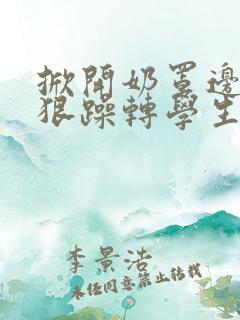 掀開奶罩邊
狠躁轉學生
李景浩
未经同意禁止转载